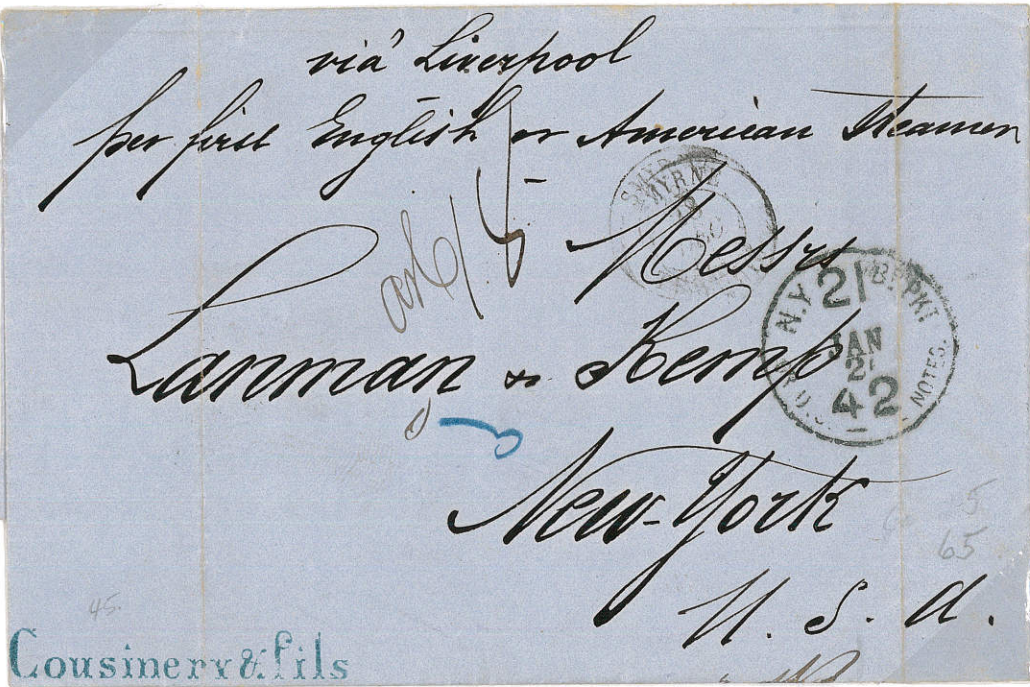 viá Liverpool
per first English or American Steamer
SMYRNE
Messrs
Lanman & Kemp
New-York
U. S. A.
N.Y. 21 BR. PKT
JAN
21
42
OR U.S. NOTES.
65
45.
Cousinery & fils